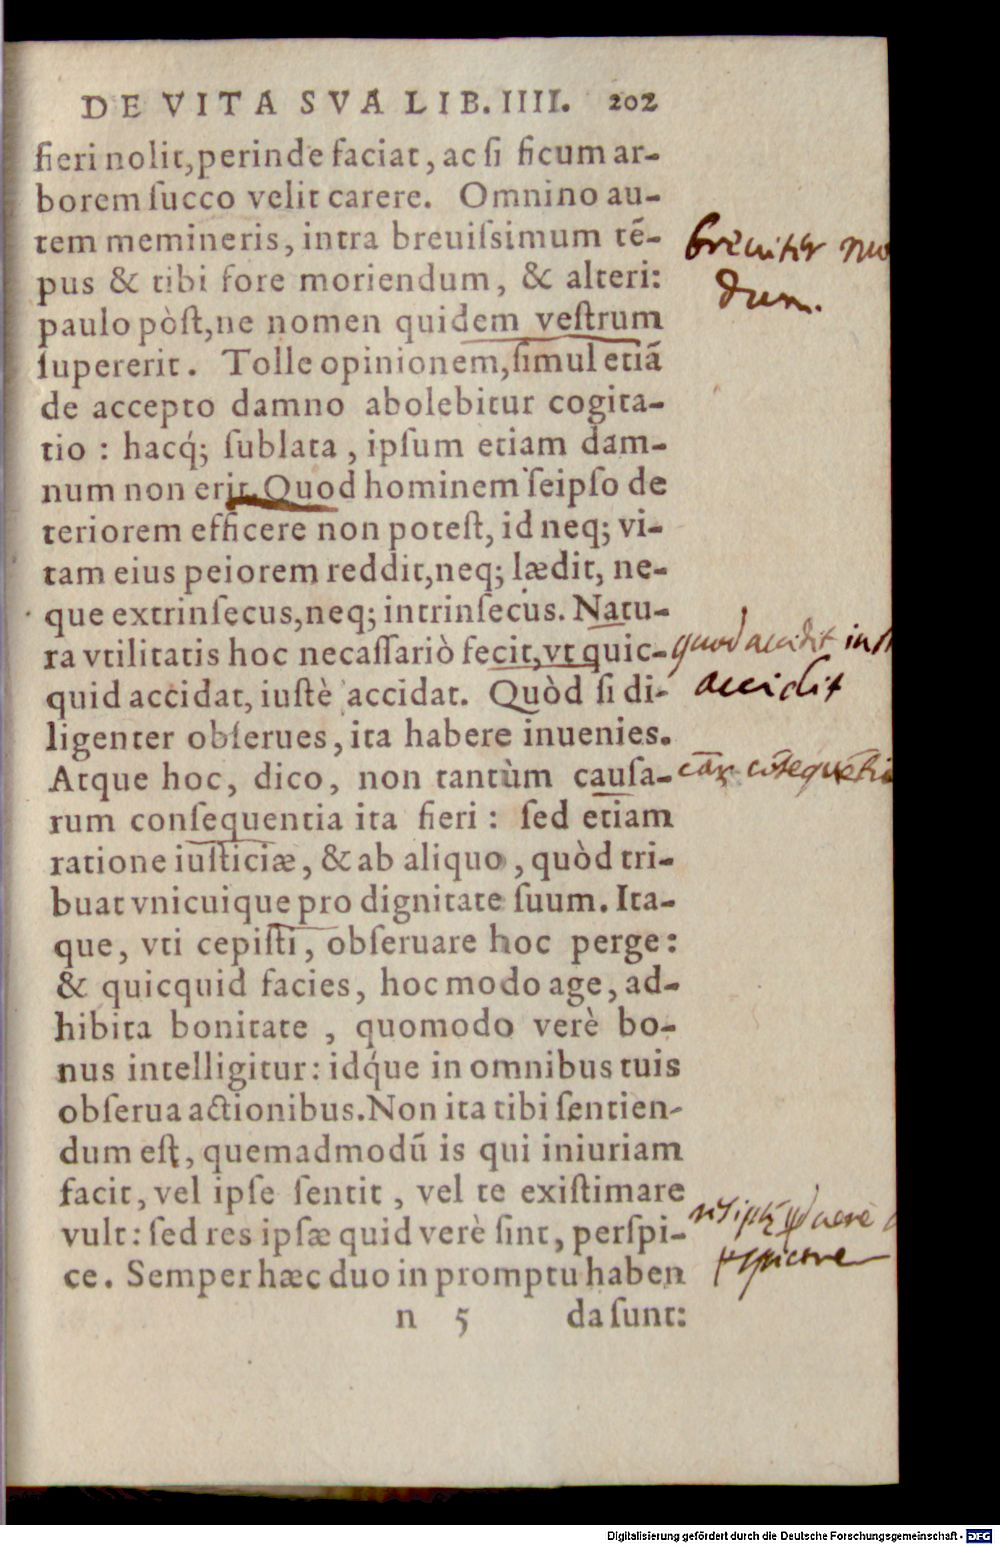 DE VITA SVA LIB. IIII. 202
fieri nolit, perinde faciat, ac ſi ficum ar-
borem ſucco velit carere. Omnino au-
tem memineris, intra breuiſsimum tē-
pus & tibi fore moriendum, & alteri:
paulo pòſt, ne nomen quidem veſtrum
ſupererit. Tolle opinionem, ſimul etiā
de accepto damno abolebitur cogita-
tio: hacq́; ſublata, ipſum etiam dam-
num non erit. Quod hominem ſeipſo de
teriorem efficere non poteſt, id neq; vi-
tam eius peiorem reddit, neq; lædit, ne-
que extrinſecus, neq; intrinſecus. Natu-
ra vtilitatis hoc necaſſariò fecit, vt quic-
quid accidat, iuſtè accidat. Quòd ſi di-
ligenter obſerues, ita habere inuenies.
Atque hoc, dico, non tantùm cauſa-
rum conſequentia ita fieri: ſed etiam
ratione iuſticiæ, & ab aliquo, quòd tri-
buat vnicuique pro dignitate ſuum. Ita-
que, vti cepiſti, obſeruare hoc perge:
& quicquid facies, hoc modo age, ad-
hibita bonitate, quomodo verè bo-
nus intelligitur: idq́ue in omnibus tuis
obſerua actionibus. Non ita tibi ſentien-
dum eſt, quemadmodū is qui iniuriam
facit, vel ipſe ſentit, vel te exiſtimare
vult: ſed res ipſæ quid verè ſint, perſpi-
ce. Semper hæc duo in promptu haben
n 5 da ſunt:
breuiter
quod accidit
accidit
Digitalisierung gefördert durch die Deutsche Forschungsgemeinschaft - DFG